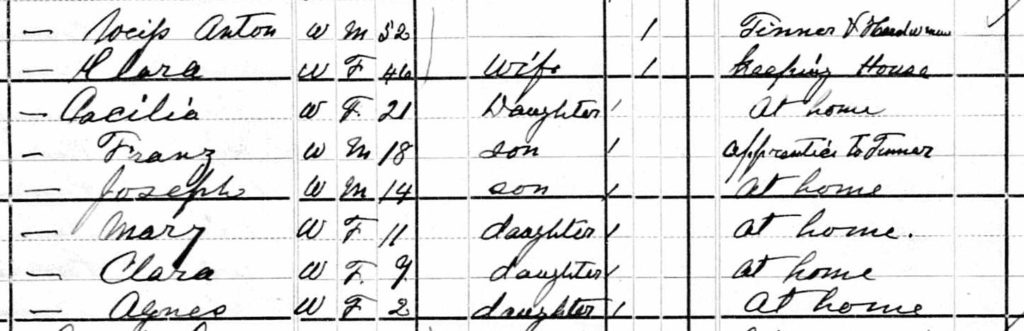 — Weiss Anton W M 52 1 Tinner &
— Klara W F 46 Wife 1 Keeping House
— Cacilia W F 21 Daughter 1 At home
— Franz W M 18 son 1 apprentice to Tinner
— Joseph W M 14 son 1 at home
— Mary W F 11 daughter 1 at home.
— Clara W F. daughter 1 at home
— Agnes W F 2 daughter 1 at home